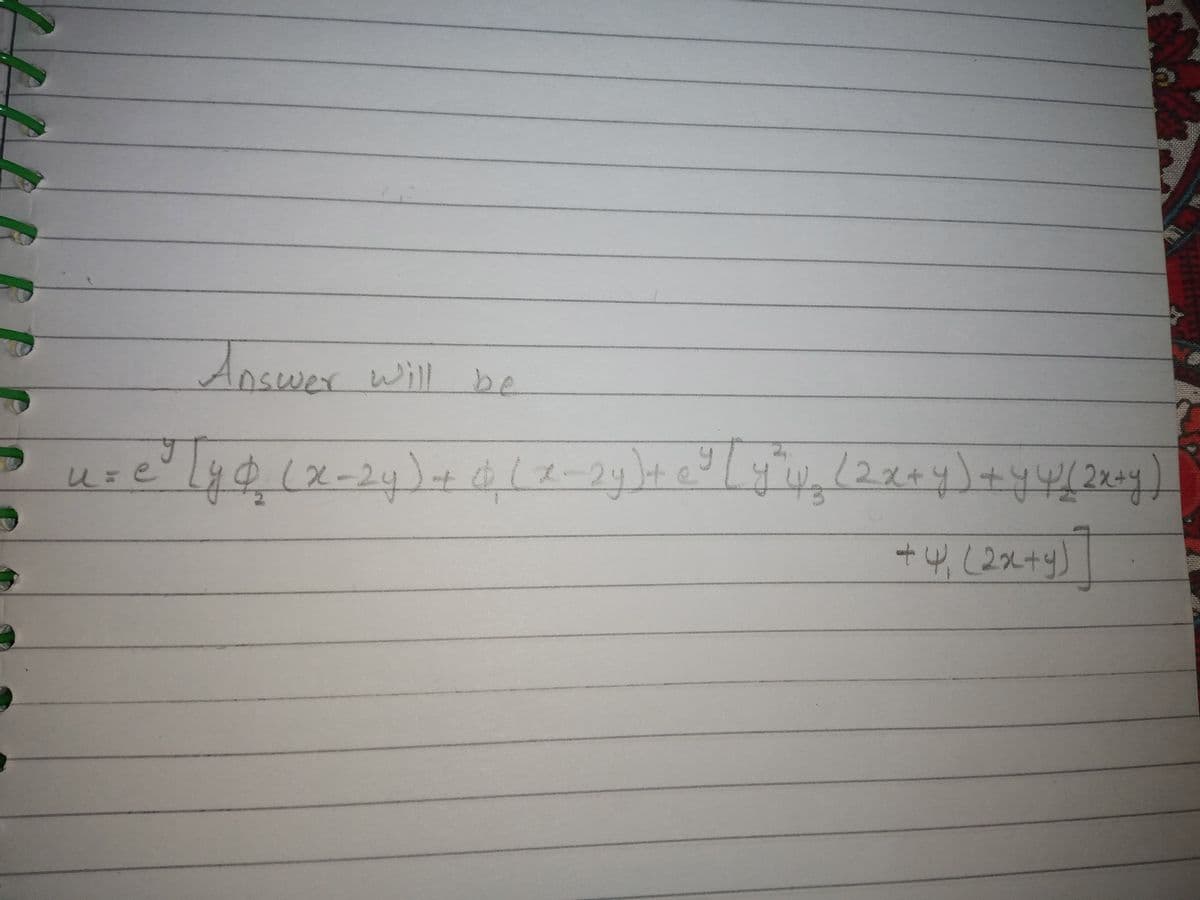 Answer will be
u = e^y [y φ₂ (x-2y) + φ₁ (x-2y) + e^y [y² ψ₃ (2x+y) + y ψ₂ (2x+y)
+ ψ₁ (2x+y)]